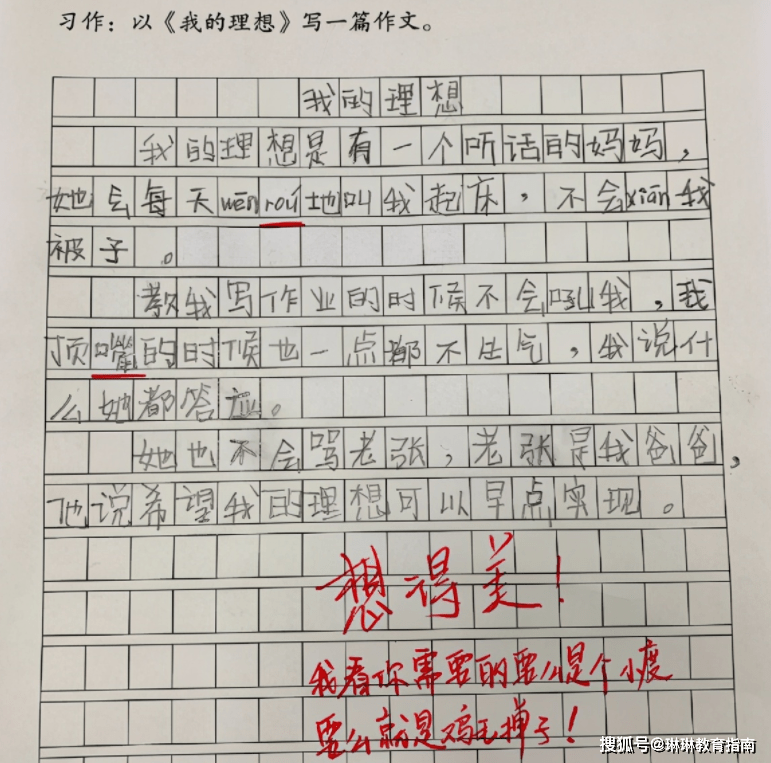 习作：以《我的理想》写一篇作文。
我的理想
我的理想是有一个听话的妈妈，
她会每天wēnróu地叫我起床，不会xiān我
被子。
教我写作业的时候不会吼我，我
顶嘴的时候也一点都不生气，我说什
么她都答应。
她也不会骂老张，老张是我爸爸，
他说希望我的理想可以早点实现。
想得美！
我看你需要的要么是个小度
要么就是鸡毛掸子！
搜狐号@琳琳教育指南